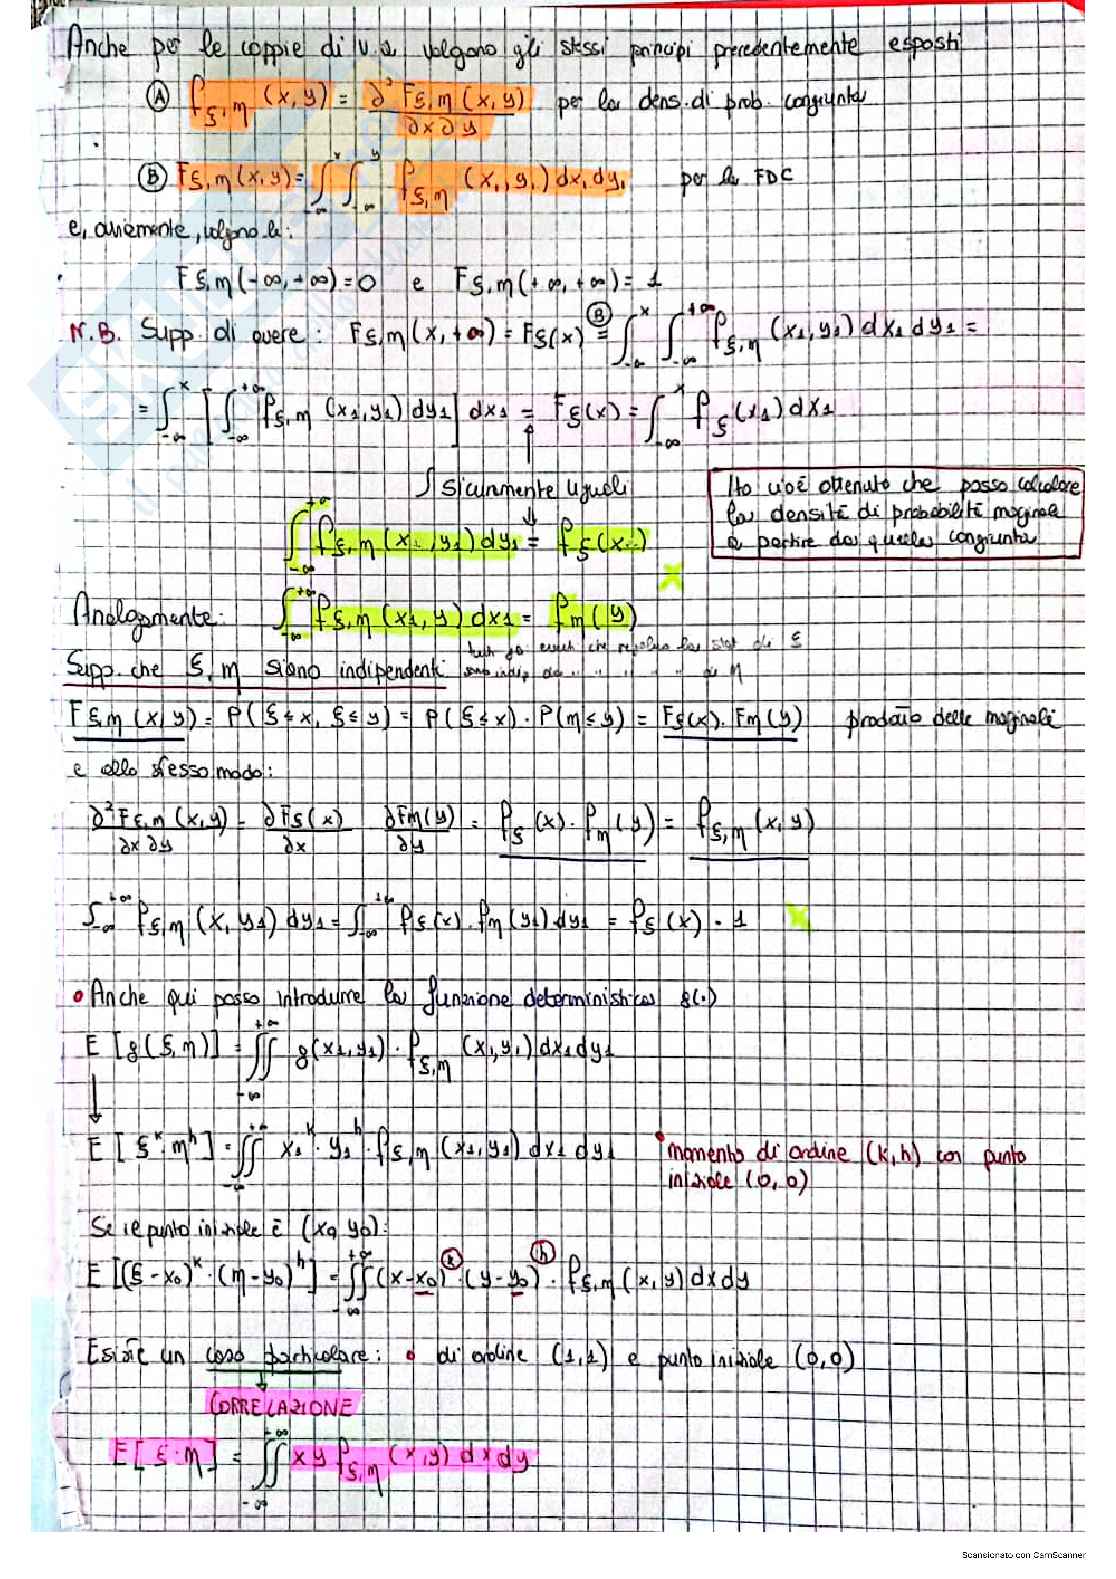 Anche per le coppie di v.a. valgono gli stessi principi precedentemente esposti
Ⓐ fξ,η (x,y) = ∂² Fξ,η (x,y) / ∂x ∂y per la dens. di prob. congiunta
Ⓑ Fξ,η (x,y) = ∫_-∞^x ∫_-∞^y fξ,η (x₁,y₁) dx₁ dy₁ per la FDC
e, ovviamente, valgono le:
Fξ,η (-∞,-∞) = 0 e Fξ,η (+∞,+∞) = 1
N.B. Supp. di avere: Fξ,η (x,+∞) = Fξ(x) =Ⓑ ∫_-∞^x ∫_-∞^+∞ fξ,η (x₁,y₁) dx₁ dy₁ =
= ∫_-∞^x [∫_-∞^+∞ fξ,η (x₁,y₁) dy₁] dx₁ = Fξ(x) = ∫_-∞^x fξ (x₁) dx₁
Sicuramente uguali
Ho cioè ottenuto che posso calcolare
la densità di probabilità marginale
a partire da quella congiunta
∫_-∞^+∞ fξ,η (x₁,y₁) dy₁ = fξ (x₁)
x
Analogamente: ∫_-∞^+∞ fξ,η (x₁,y) dx₁ = fη (y)
che regolano la stat di ξ
Supp. che ξ,η siano indipendenti sono indip. da " " " di η
Fξ,η (x,y) = P(ξ ≤ x, ξ ≤ y) = P(ξ ≤ x) · P(η ≤ y) = Fξ(x) · Fη(y) prodotto delle marginali
e allo stesso modo:
∂² Fξ,η (x,y) / ∂x ∂y = ∂Fξ(x) / ∂x ∂Fη(y) / ∂y = fξ (x) · fη (y) = fξ,η (x,y)
∫_-∞^+∞ fξ,η (x,y₁) dy₁ = ∫_-∞^+∞ fξ(x) · fη (y₁) dy₁ = fξ (x) · 1 x
• Anche qui posso introdurre la funzione deterministica g(·)
E [g(ξ,η)] = ∬_-∞^+∞ g(x₁,y₁) · fξ,η (x₁,y₁) dx₁ dy₁
E [ξ^k · η^h] = ∬_-∞^+∞ x₁^k · y₁^h · fξ,η (x₁,y₁) dx₁ dy₁ • momento di ordine (k,h) con punto
iniziale (0,0)
Se il punto iniziale è (x₀,y₀):
E [(ξ-x₀)^k · (η-y₀)^h] = ∬_-∞^+∞ (x-x₀)^k · (y-y₀)^h · fξ,η (x,y) dx dy
Esiste un caso particolare: • di ordine (1,1) e punto iniziale (0,0)
CORRELAZIONE
E [ξ·η] = ∬_-∞^+∞ xy fξ,η (x,y) dx dy
Scansionato con CamScanner